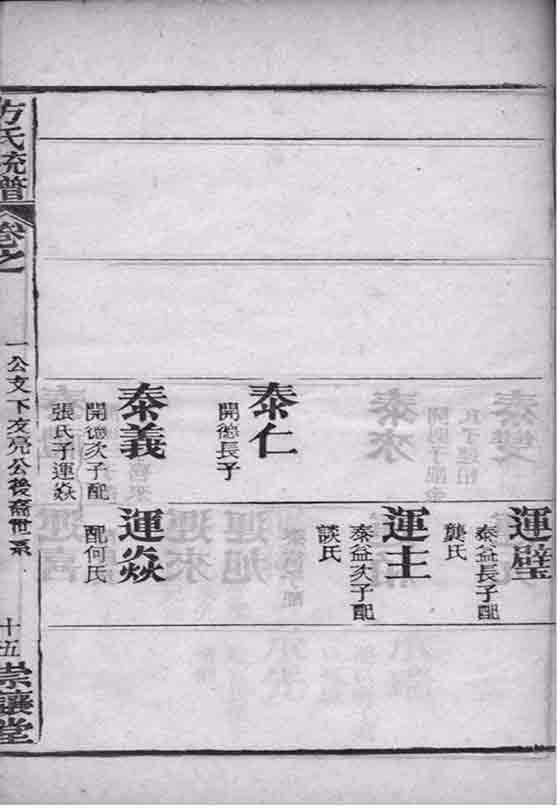 運璧
泰益長子配
龔氏
運主
泰益次子配
談氏
泰仁
開德長子
泰義
開德次子配
張氏子運焱
運焱
配何氏
方氏統譜
卷之
一公支下友亮公後裔世系
十五
崇讓堂